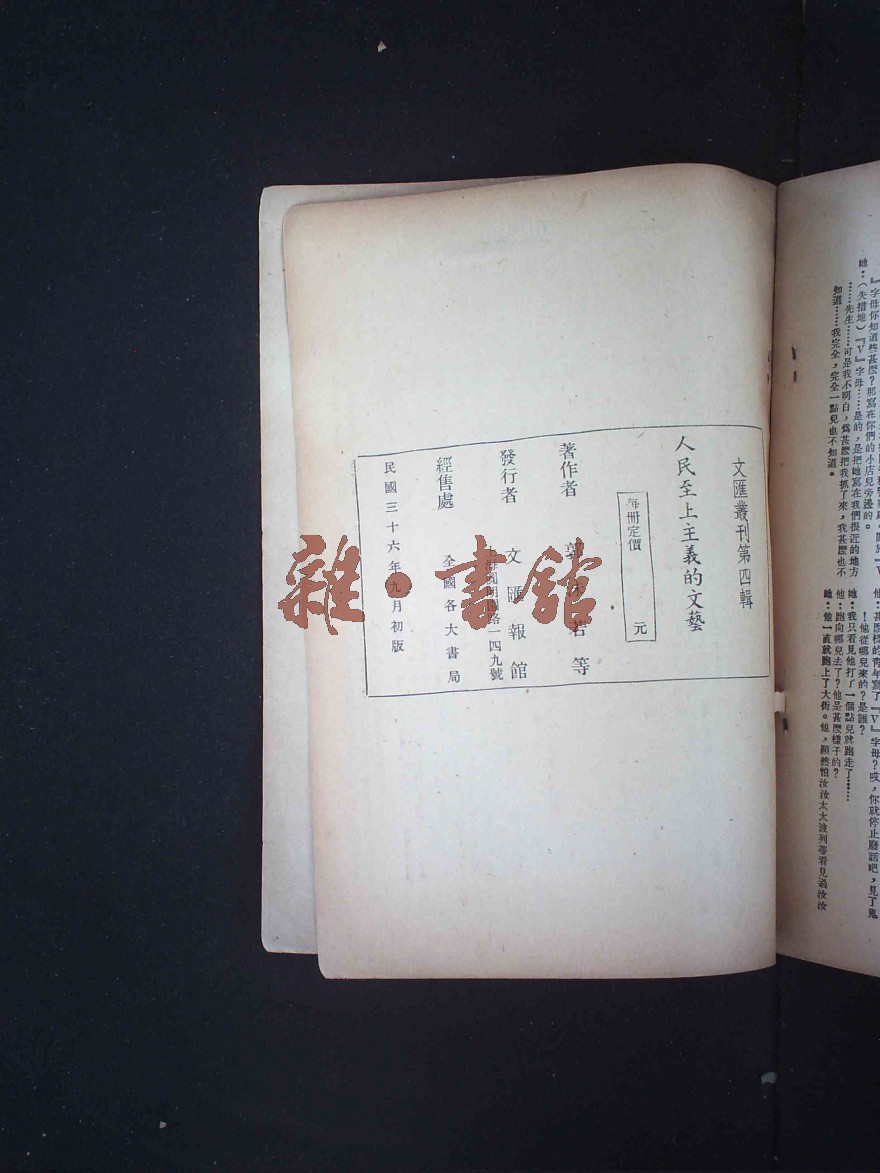 』字母你知道些甚麼？那寫在你們的小店兒旁邊的。
她：（失措地）『V』字母……是的，是把她寫在我們很近的地方
……先生……可是我不明白，爲甚麼把我抓了來，我甚麼也不
知道……我完全，完全一點兒也不知道。
他：甚麼樣的青年寫了『V』字母？哎，你就停止廢話吧，見了鬼
！他從哪兒來的？是誰？
她：我只看見他打了一個點兒就跑走了……
他：跑向哪兒去了？他是甚麼樣子的？
她：他一直就跑上了大街。他，顯然怕汝汝太太波列蒂看見過汝汝
文匯叢刊第四輯
人民至上主義的文藝
每冊定價 元
著作者 郭沫若等
發行者 文匯報館
上海圓明園路一四九號
經售處 全國各大書局
民國三十六年九月初版
雜·書館